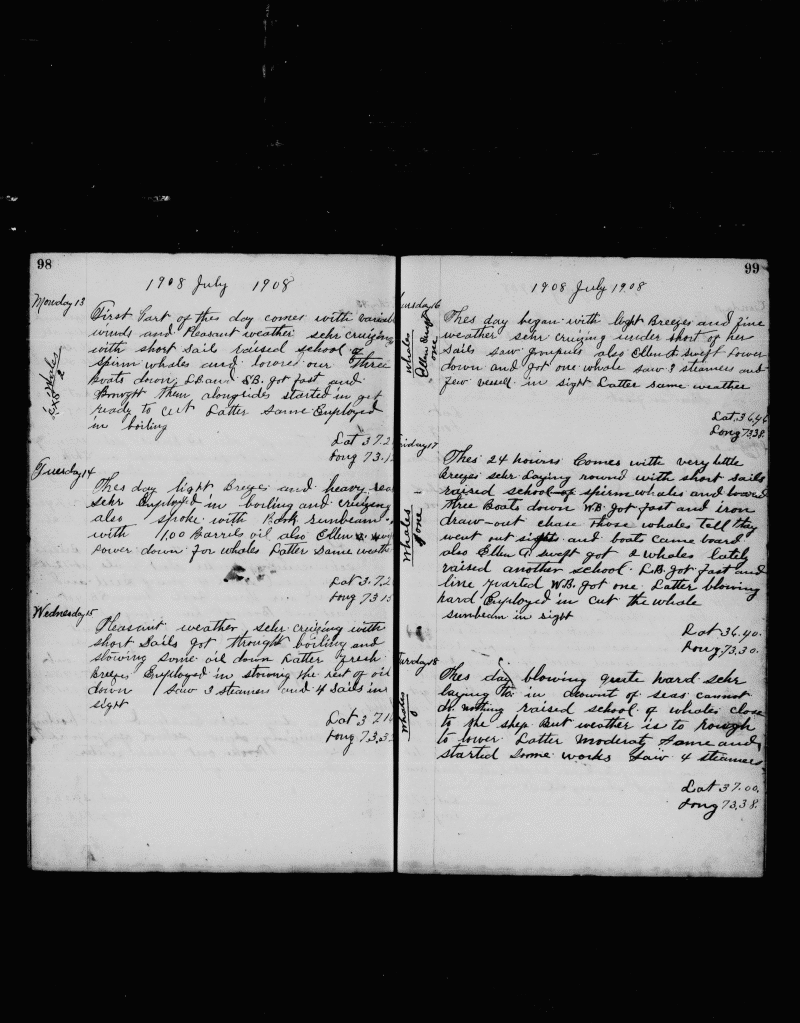 98
1908 July 1908
Monday 13
First Part of thes day comes with varial
winds and Pleasant weather sehr cruizing
with short sails raised school of
spirm whales and lowered our Three
Boats down L.B and S.B. got fast and
Brought them alongsides started in get
ready to cut Latter same Employed
in boiling
Whales
2
Lat 37.2
Long 73.1
Tuesday 14
Thes day light Breges and heavy sea
sehr Employd in boiling and cruizing
also spoke with Bark sunbeam
with 100 Barrels oil also Ellen
Lower down for whales Latter same weath
Lat 37.2
Long 73 15
Wednesday 15
Pleasant weather sehr cruizing with
short Sails got throught boiling and
stowing some oil down Latter fresh
Breges Employed in stowing the rest of oil
down saw 3 steamers and 4 Sails in
sight
Lat 37.1
Long 73.3
99
1908 July 1908
ursday 16
Thes day began with light Breeges and fine
weather sehr cruizing under short of her
Sails saw also Ellen A swift Lower
down and got one whale saw 3 steamers and
few vessell in sight Latter same weather
whales
Ellen swift
Lat. 36.46
Long 73.38.
riday 17
Thes 24 hours Comes with very little
Breezes sehr Laying round with short Sails
raised school of spirm whales and lowerd
three Boats down W.B. got fast and iron
draw-out chase those whales tell they
went out sight and boats came board
also Ellen A swift got 2 whales lately
raised another school. L.B. got fast and
line parted W.B. got one. Latter blowing
hard Employed in cut the whale
sunbeam in sight
Whales
gone
Lat 36.40.
Long 73.30.
turday 18
Thes day blowing quite hard sehr
laying to in acount of seas cannot
do nothing raised school of whales close
to the ship But weather is to rough
to lower. Latter Moderat, same and
started some works saw 4 steamers
whales
Lat 37.00.
Long 73.38.